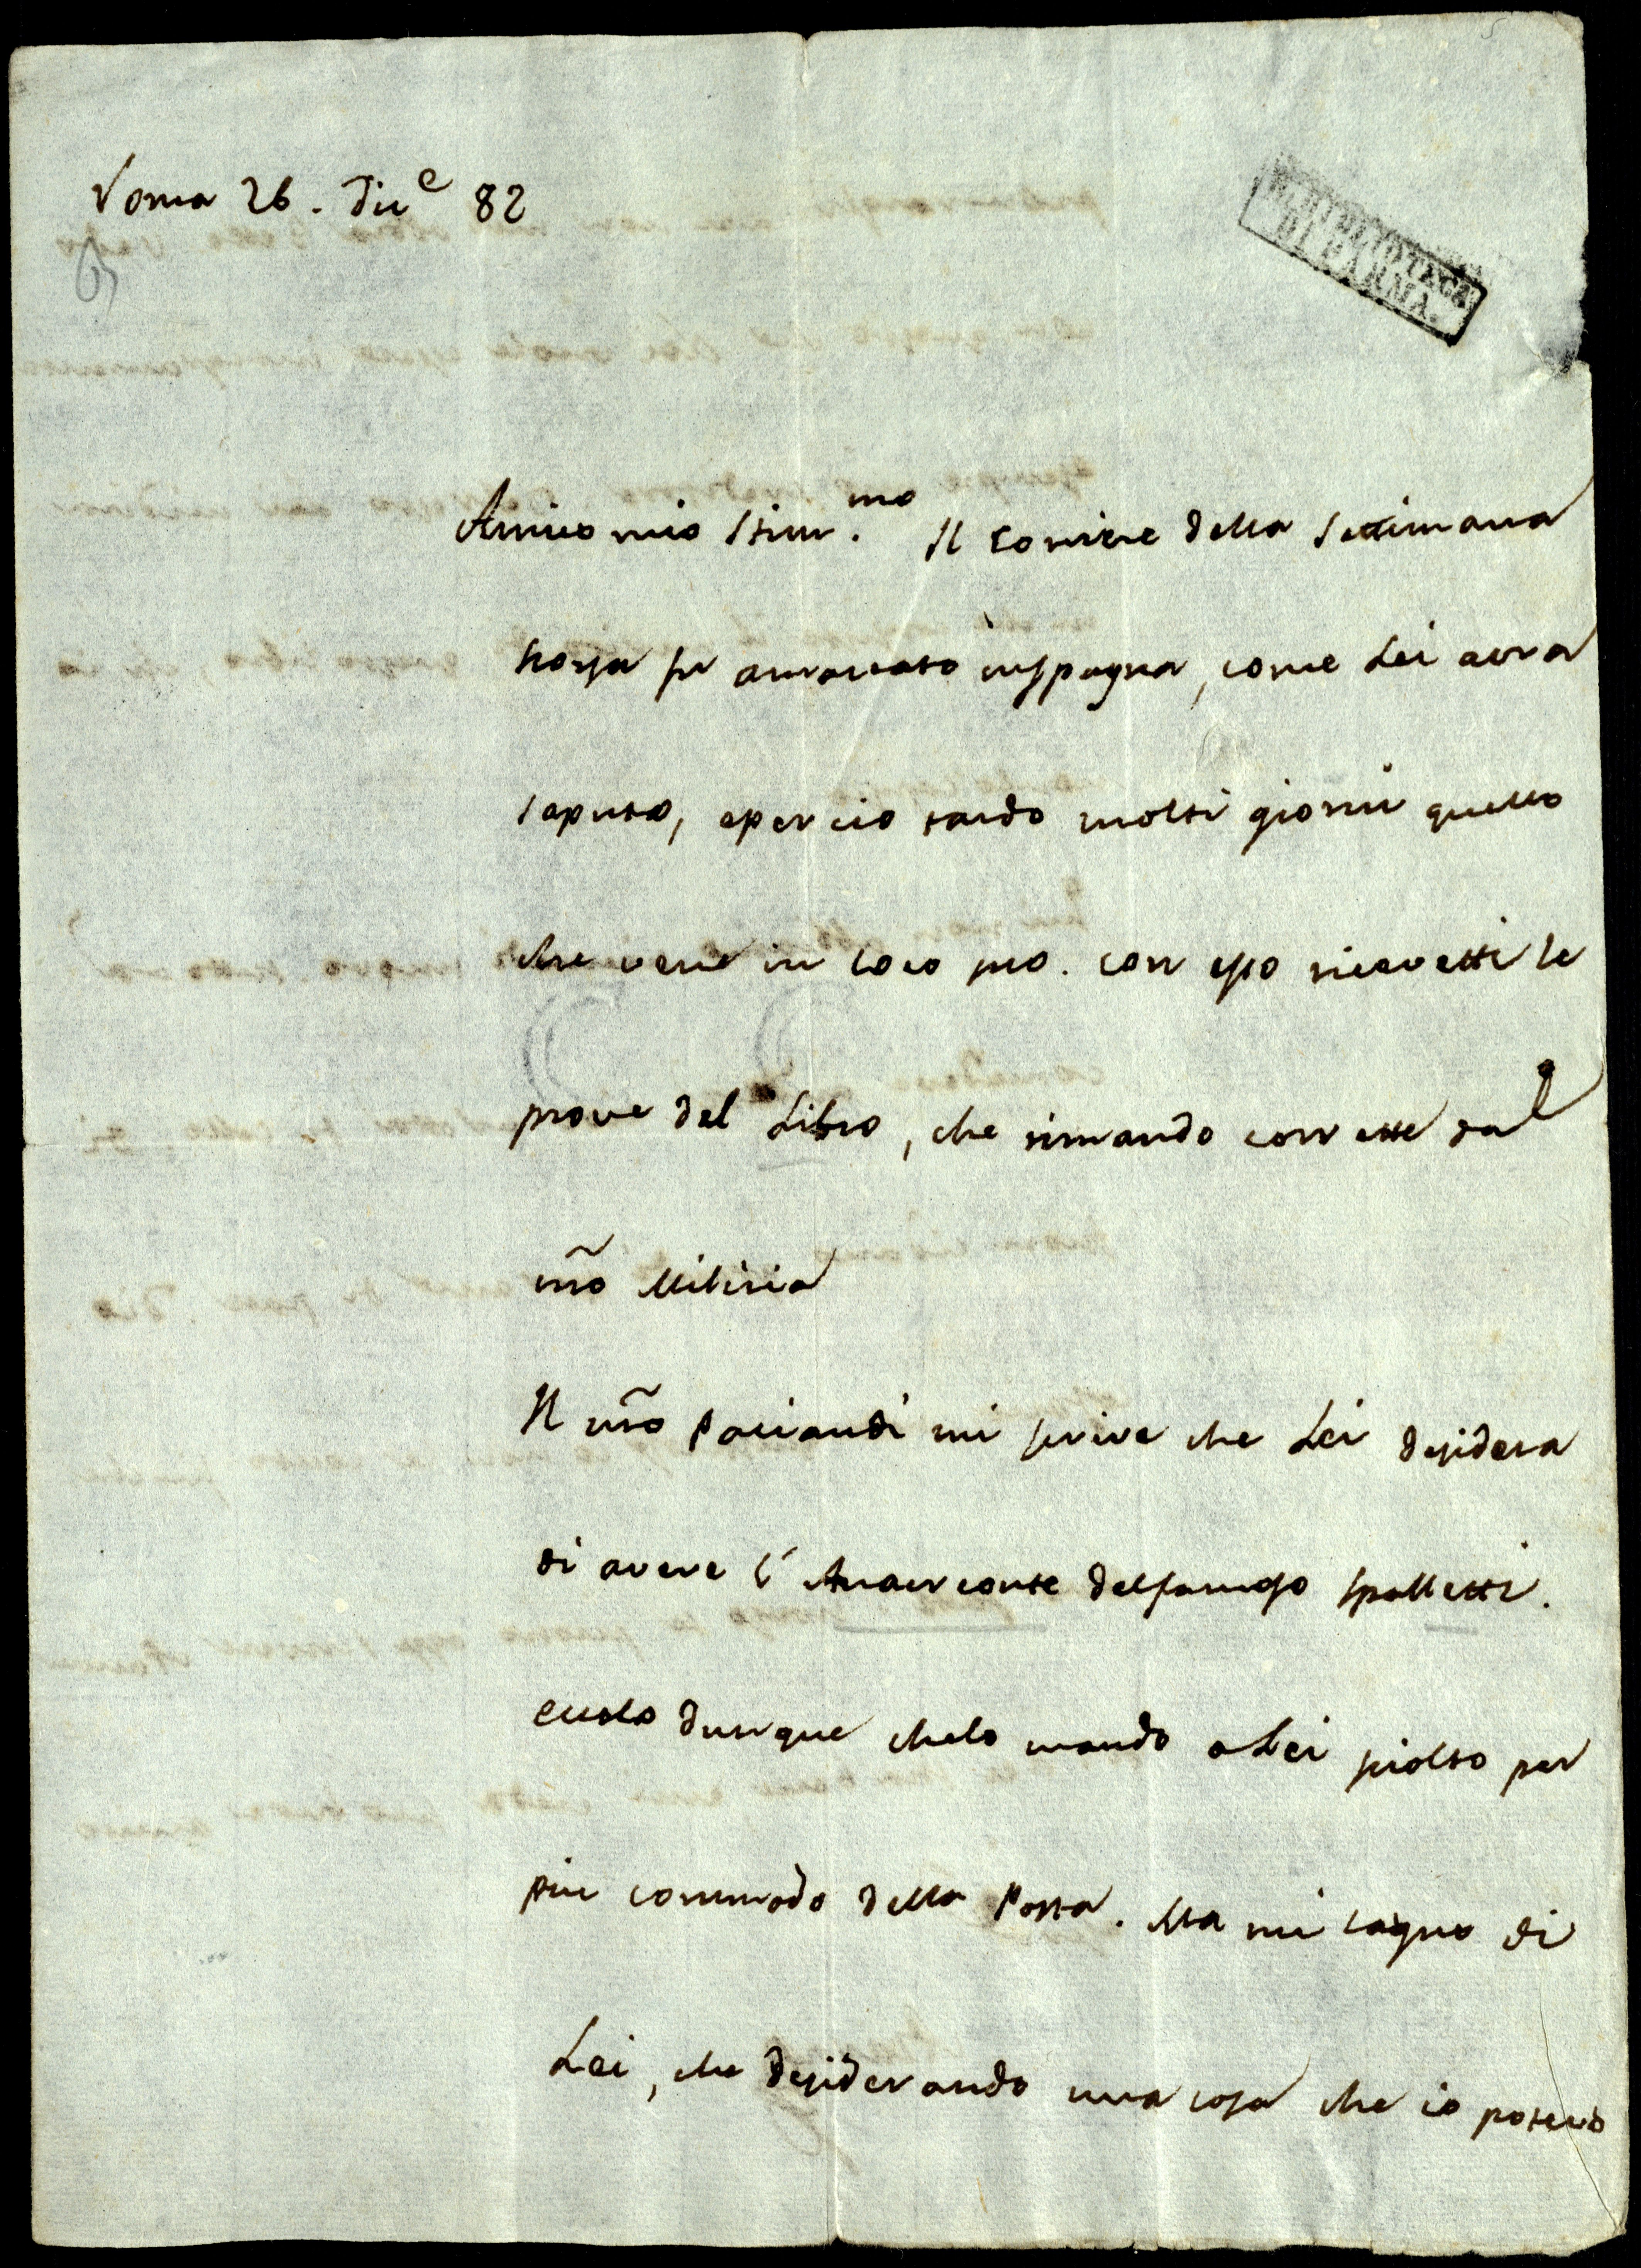 Roma 26. Dice 82
R. BIBLIOTECA
DI PARMA.
Amico mio Stim.mo Il Corriere della Settimana
scorsa fu amazzato in Spagna, come Lei avra
saputo, e per cio tardo molti giorni quello
che vene in loco suo. con esso ricevetti le
prove del Libro, che rimando corrette dal
nr̃o Milizia
Il nr̃o Paciaudi mi scrive che Lei desidera
di avere l'Anacreonte del famoso Spalletti.
eccolo dunque che lo mando a Lei sciolto per
piu commodo della Posta. Ma mi lagno di
Lei, che desiderando una cosa che io potevo